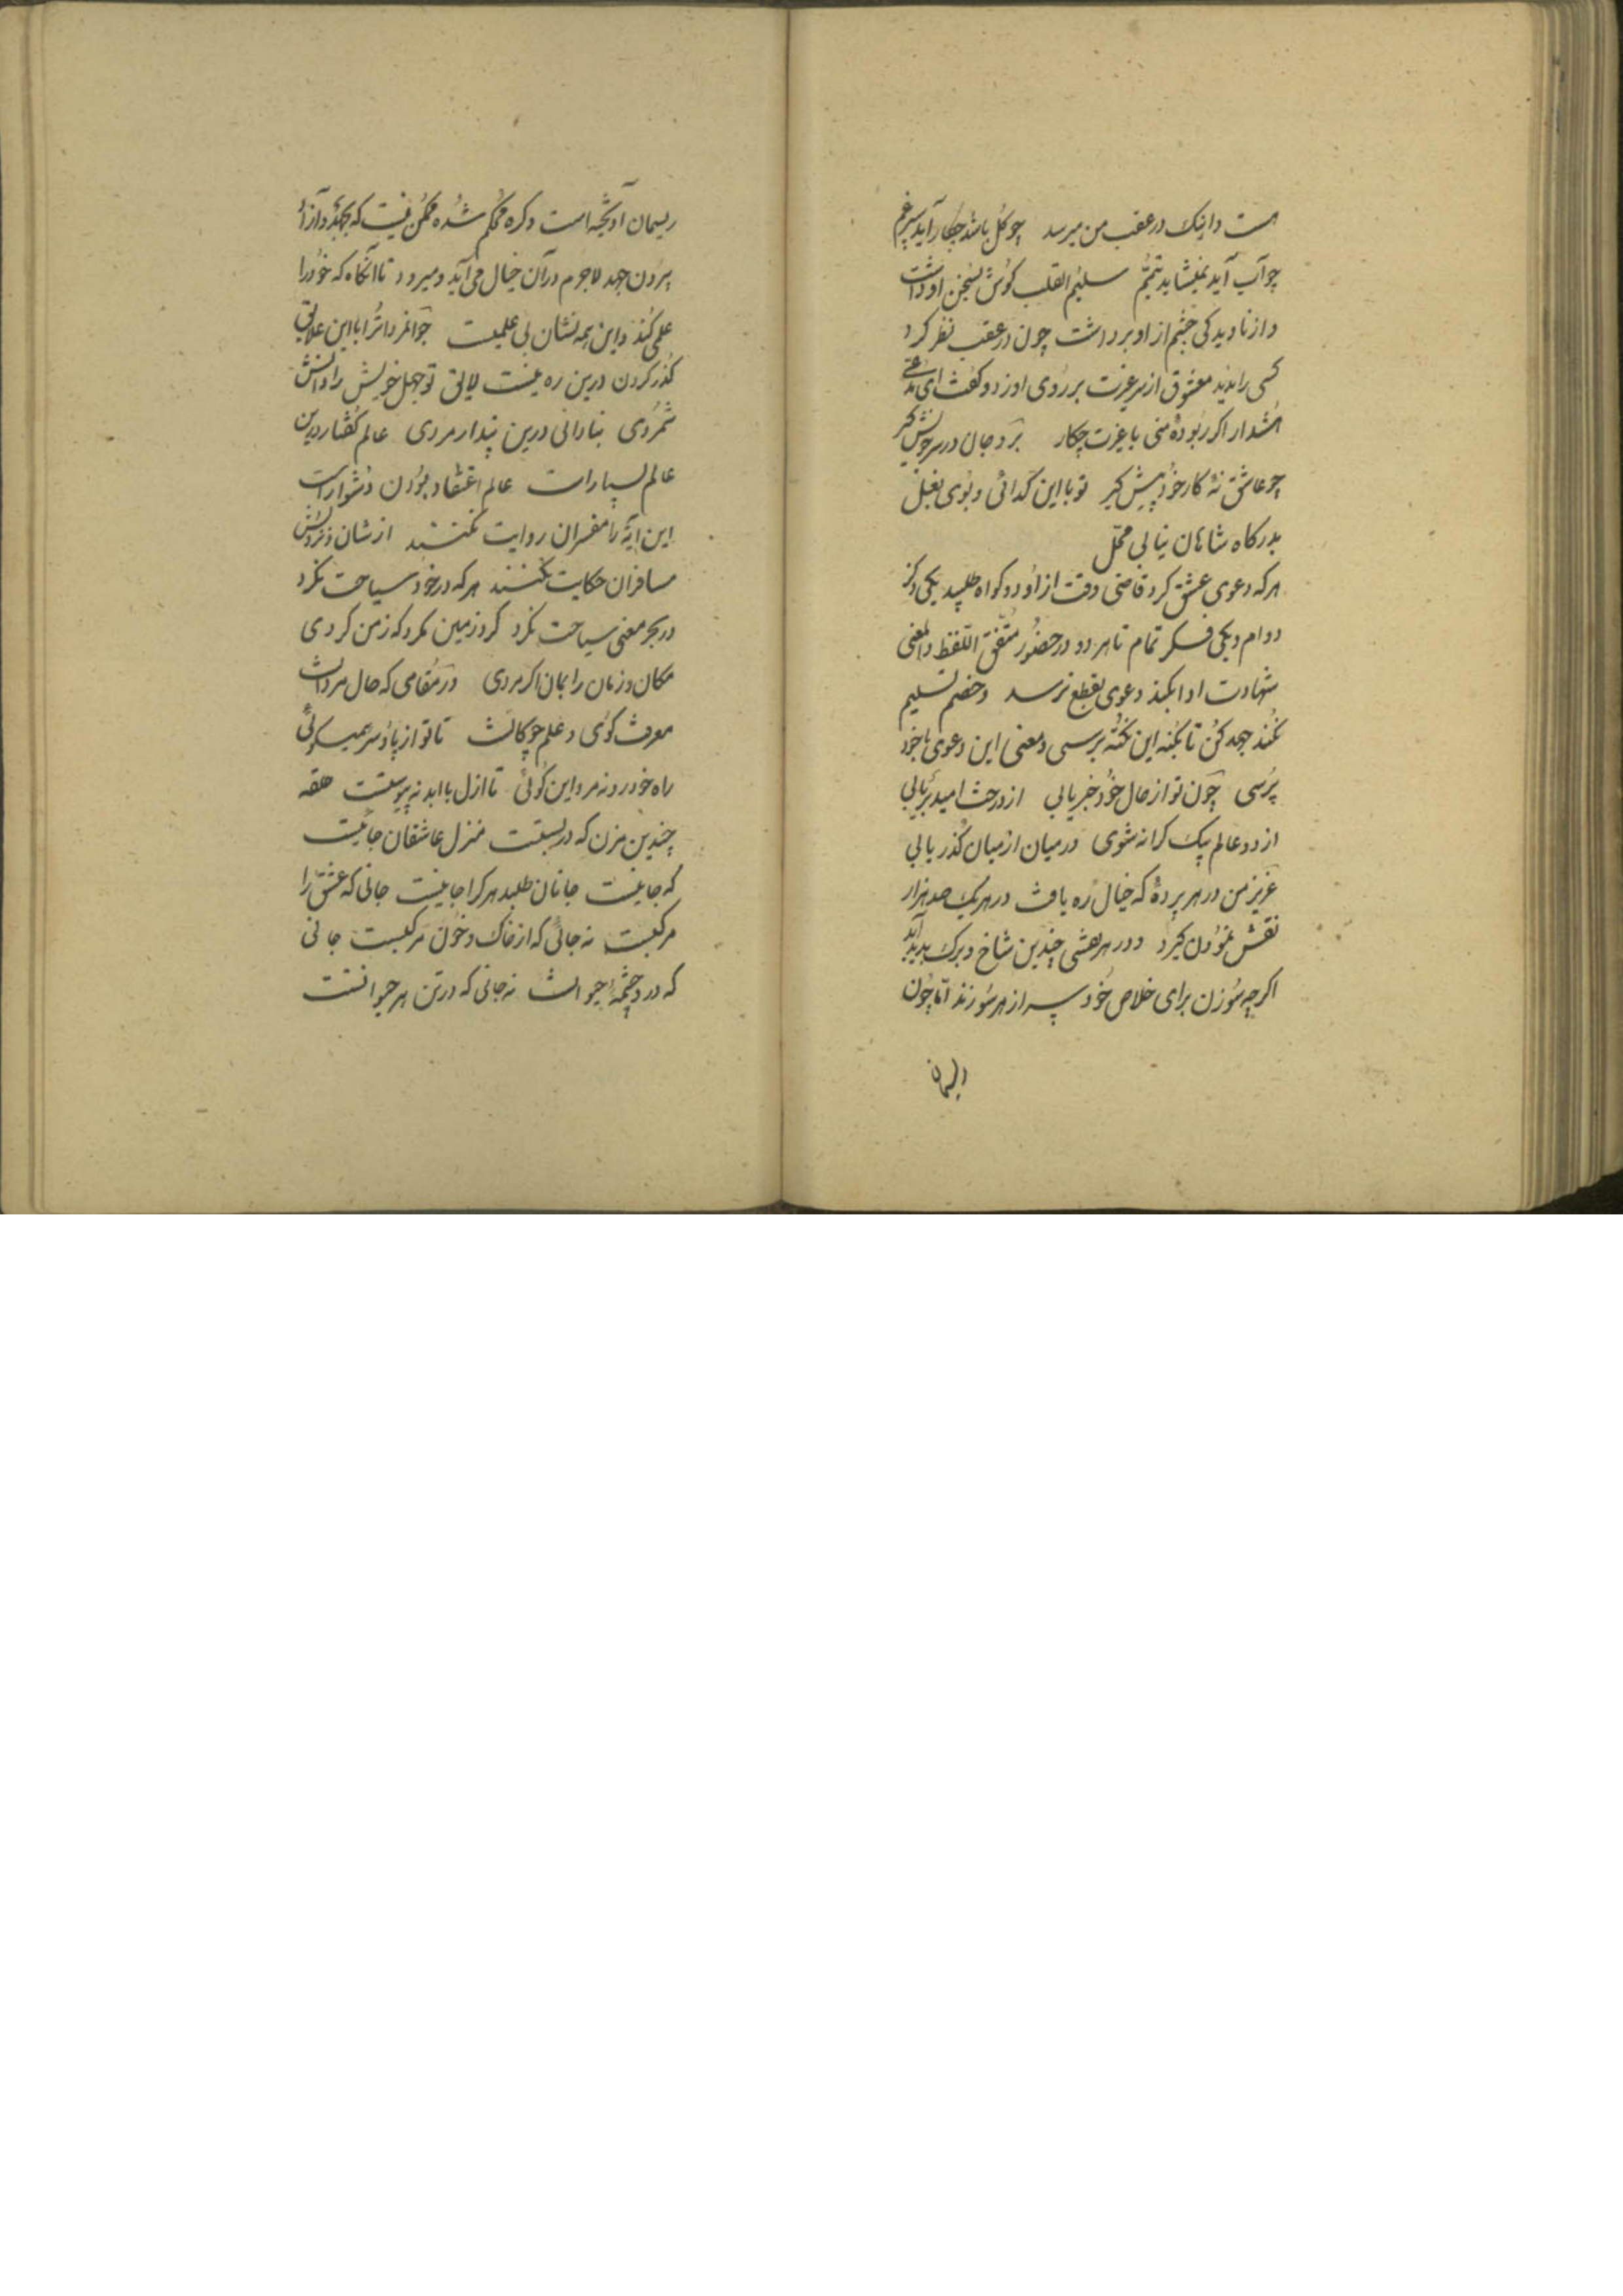 است و اینک در عقب من میرسد چو گل باشد چکار آید سپرغم
چو آب آید نمیشاید تیمّم سلیم القلب گوش بسخن او داشت
و از نادیدگی چشم از او برداشت چون در عقب نظر کرد
کسی را ندید معشوق از سر غیرت بر روی او زد و گفت ای مدعی
هشدار اگر ربودهٔ منی با غیرت چکار برو جان در سر خویش گیر
چو عاشق نهٔ کار خود پیش گیر تو با این گدائی و بوی بغل
بدرگاه شاهان نیابی محل
هرکه دعوی عشق کرد قاضی وقت از او دو گواه طلبید یکی ذکر
دوام و یکی فکر تمام تا هر دو در حضور متّفق اللّفظ والمعنی
شهادت ادا نکنند دعوی بقطع نرسد و خصم تسلیم
نکند جهد کن تا بکنه این نکته برسی و معنی این دعوی با خود
پرسی چون تو از حال خود خبر یابی از درخت امید بر یابی
از دو عالم بیک کرانه شوی در میان از میان گذر یابی
عزیز من در هر پردهٔ که خیال ره یافت در هر یک صد هزار
نقش نمودن گیرد و در هر نقشی چندین شاخ و برگ پدید آید
اگرچه سوزن برای خلاص خود سر از هر سو زند امّا چون
ریسمان
ریسمان آویخته است و گره محکم شده ممکن نیست که بجهد و از آن
بیرون جهد لاجرم در آن خیال می‌آید و میرود تا آنگاه که خود را
علمی کند و این همه نشان بی علمیست جوانمردا ترا با این علایق
گذر کردن درین ره نیست لایق تو جهل خویش را دانش
شمردی بنادانی درین پندار مردی عالم گفتار درین
عالم بسیارست عالم اعتقاد بودن دشوارست
این آیه را مفسران روایت نکنند از نشان
مسافران حکایت نکنند هرکه در خود سیاحت نکرد
در بحر معنی سیاحت نکرد گرد زمین مگرد که زمن گردی
مکان و زمان را بمان اگر مردی در مقامی که حال مردانست
معرفت گوی و علم چوگانست تا تو از پا و سر
راه خود رو نه مرد این گوئی تا ازل با ابد نه پیوستست حقه
چندین مزن که در بستست منزل عاشقان جائیست
که جا نیست جانان طلبد هر کرا جا نیست جانی که عشق را
مرکبست نه جانی که از خاک و خون مرکبست جانی
که درو چشمهٔ حیوانست نه جانی که در تن هر حیوانست